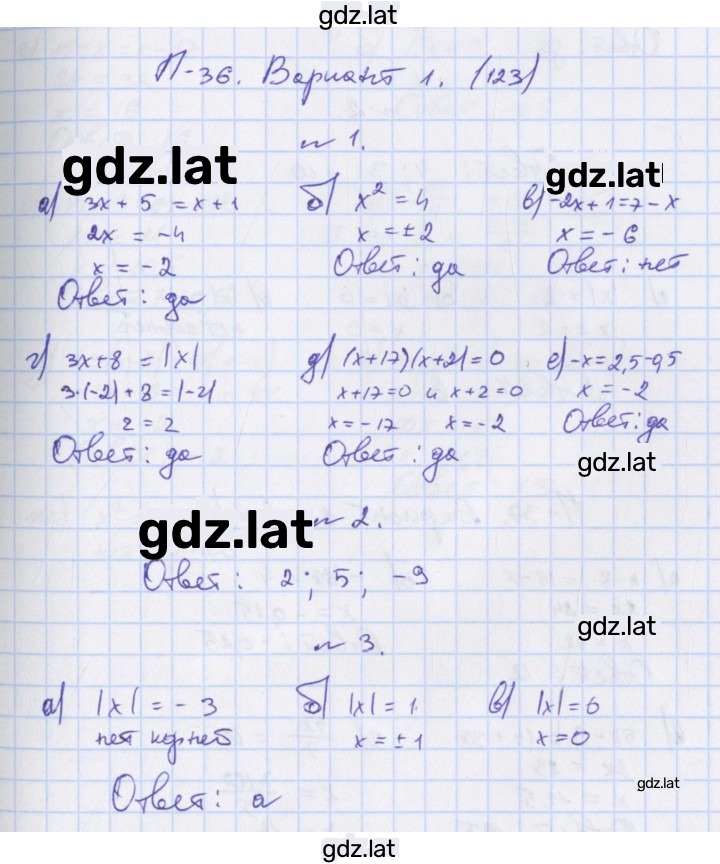 gdz.lat
П-36. Вариант 1. (123)
№ 1.
gdz.lat
gdz.lat
а) 3x + 5 = x + 1
2x = -4
x = -2
Ответ: да
б) x² = 4
x = ±2
Ответ: да
в) -2x + 1 = 7 - x
x = -6
Ответ: нет
г) 3x + 8 = |x|
3·(-2) + 8 = |-2|
2 = 2
Ответ: да
д) (x+17)(x+2) = 0
x+17=0 и x+2=0
x = -17 x = -2
Ответ: да
е) -x = 2,5-0,5
x = -2
Ответ: да
gdz.lat
gdz.lat
№ 2.
Ответ: 2; 5; -9
gdz.lat
№ 3.
а) |x| = -3
нет корней
б) |x| = 1
x = ±1
в) |x| = 0
x = 0
Ответ: а
gdz.lat
gdz.lat